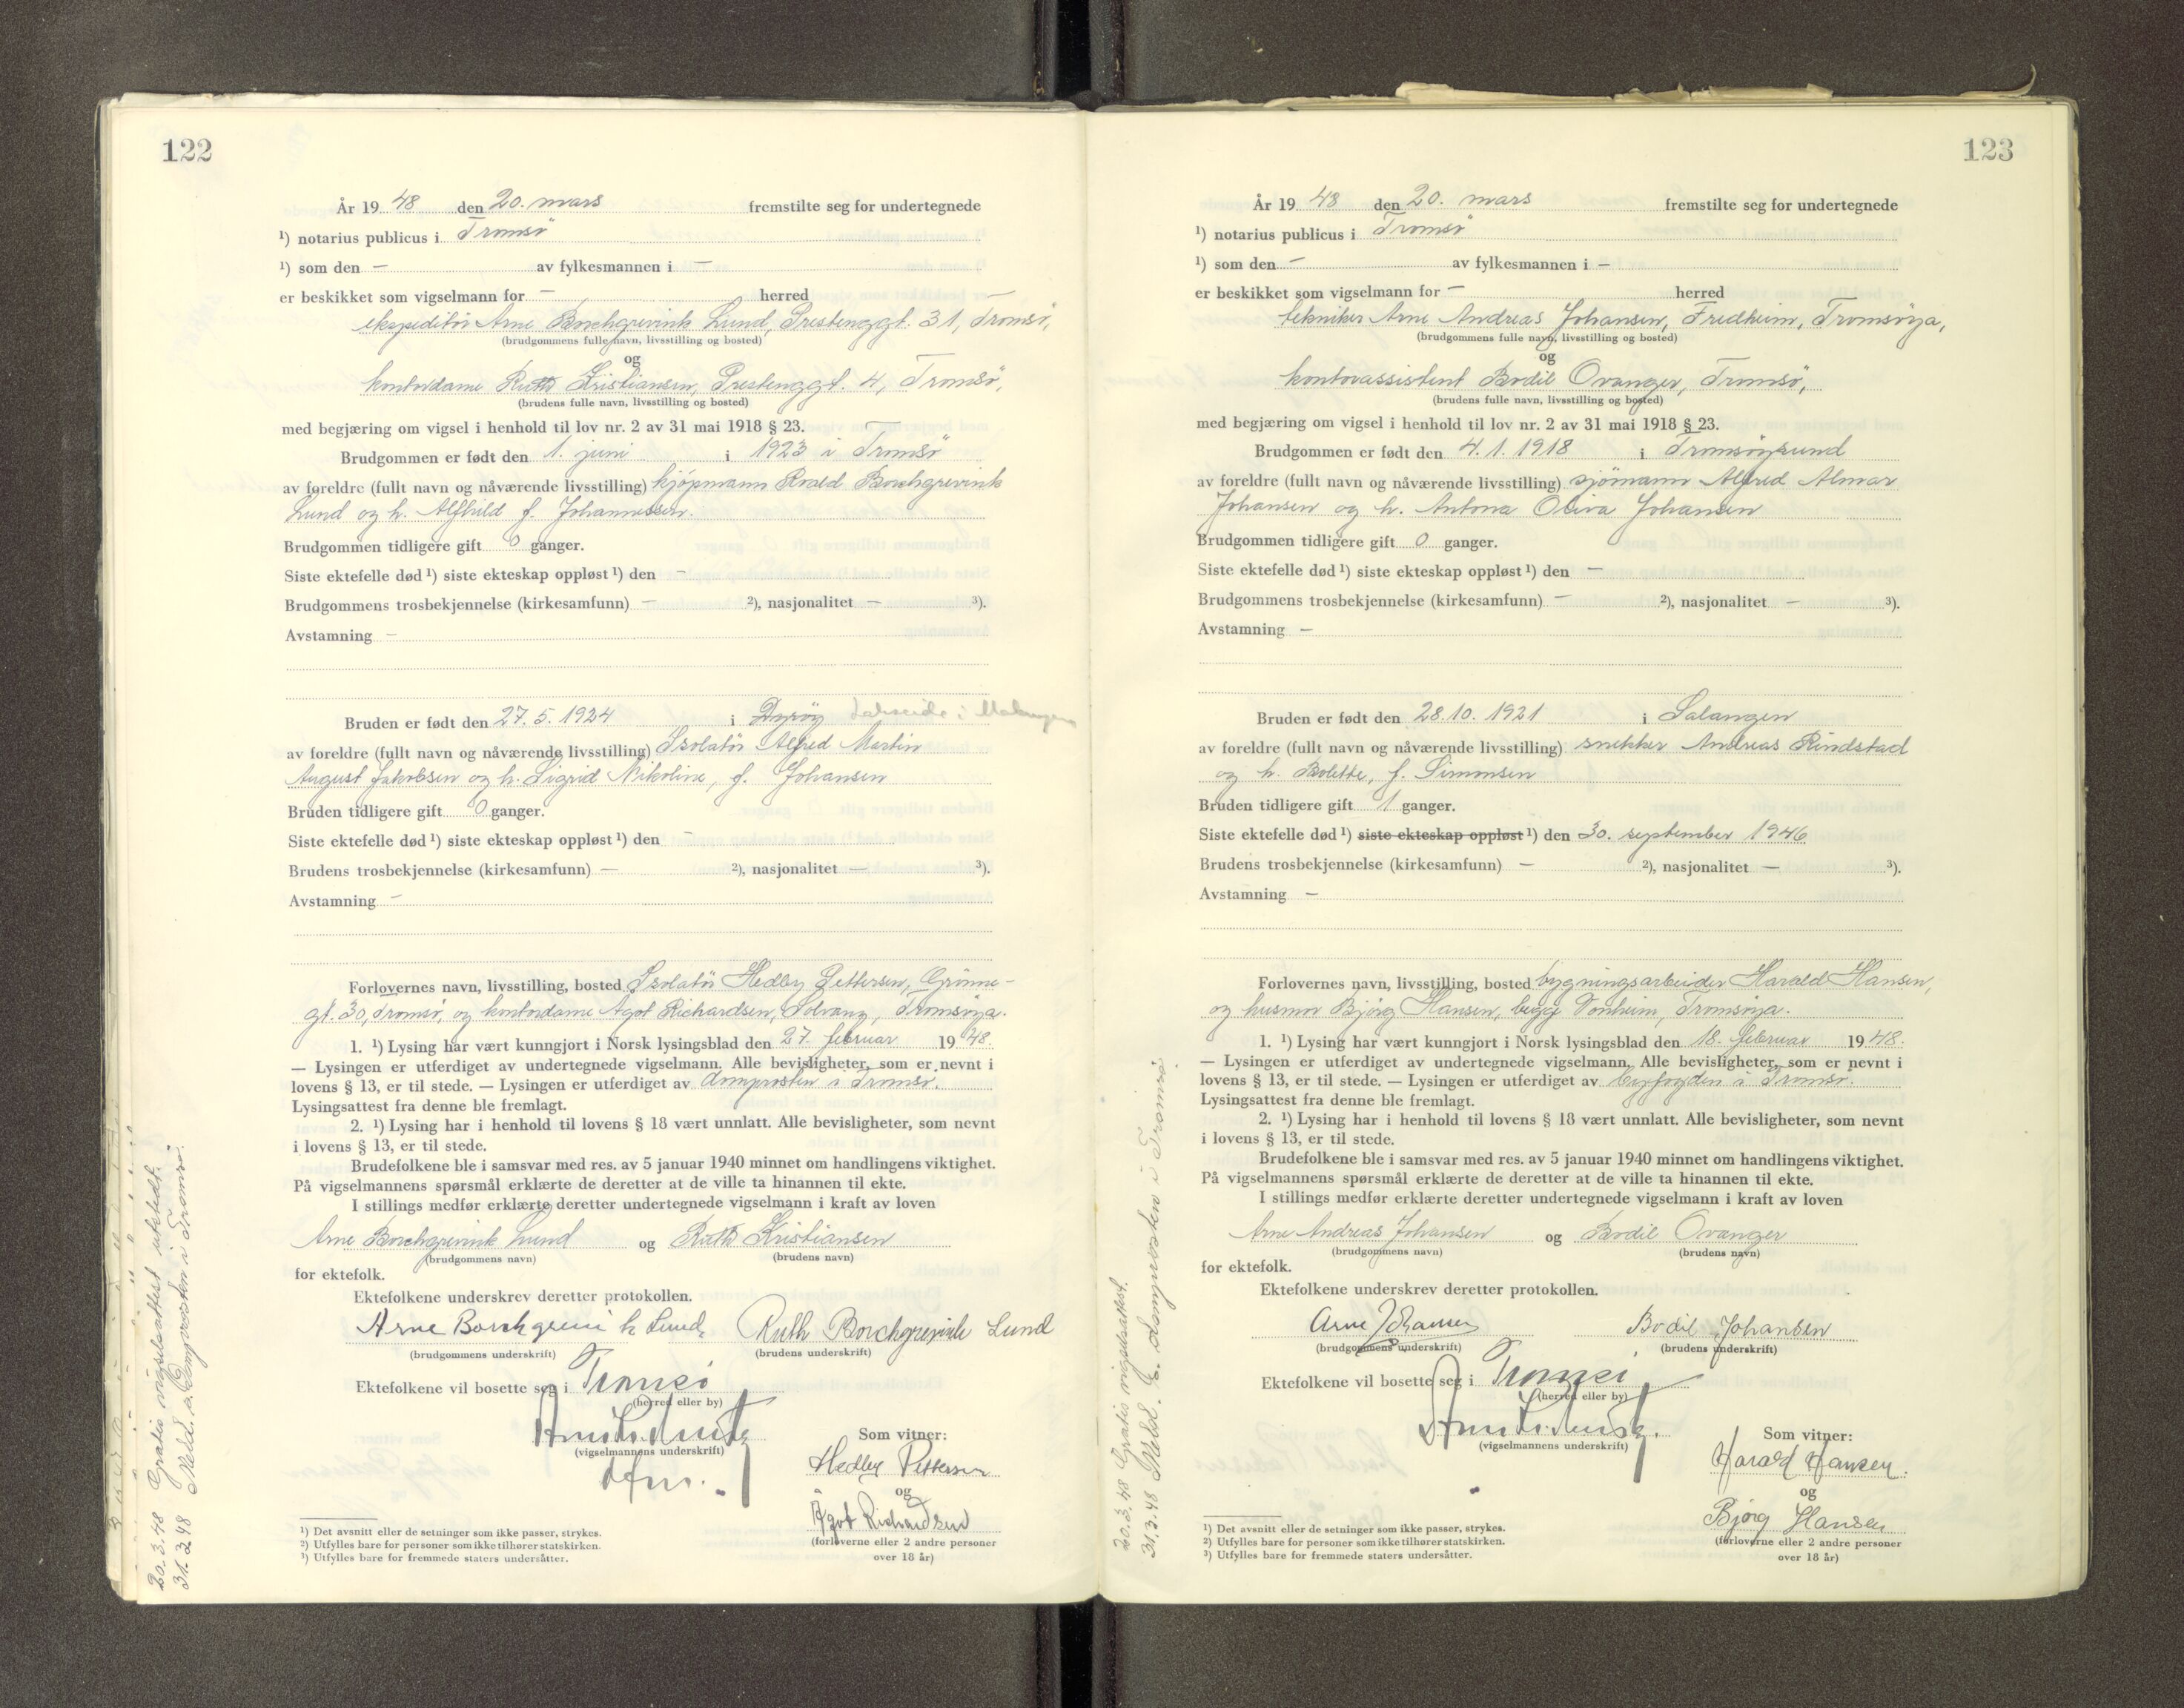 122
År 19 48 den 20. mars fremstilte seg for undertegnede
¹) notarius publicus i Tromsö
¹) som den — av fylkesmannen i —
er beskikket som vigselmann for — herred
ekspeditör Arne Borchgrevink Lund, Prestenggt. 31, Tromsö,
(brudgommens fulle navn, livsstilling og bosted)
og
kontordame Ruth Kristiansen, Prestenggt. 4, Tromsö,
(brudens fulle navn, livsstilling og bosted)
med begjæring om vigsel i henhold til lov nr. 2 av 31 mai 1918 § 23.
Brudgommen er født den 1. juni i 1923 i Tromsö
av foreldre (fullt navn og nåværende livsstilling) kjöpmann Roald Borchgrevink
Lund og h. Alfhild f. Johannessen.
Brudgommen tidligere gift 0 ganger.
Siste ektefelle død ¹) siste ekteskap oppløst ¹) den —
Brudgommens trosbekjennelse (kirkesamfunn) — ²), nasjonalitet — ³).
Avstamning —
Bruden er født den 27. 5. 1924 i Dyröy
av foreldre (fullt navn og nåværende livsstilling) Isolatör Alfred Martin
August Jakobsen og h. Sigrid Nikoline, f. Johansen
Bruden tidligere gift 0 ganger.
Siste ektefelle død ¹) siste ekteskap oppløst ¹) den —
Brudens trosbekjennelse (kirkesamfunn) — ²), nasjonalitet — ³).
Avstamning —
Forlovernes navn, livsstilling, bosted Isolatör Hedley Pettersen, Grönne-
gt. 30, Tromsö, og kontordame Ågot Richardsen, Solvang, Tromsöya.
1. ¹) Lysing har vært kunngjort i Norsk lysingsblad den 27. februar 19 48.
— Lysingen er utferdiget av undertegnede vigselmann. Alle bevisligheter, som er nevnt i
lovens § 13, er til stede. — Lysingen er utferdiget av domprosten i Tromsö.
Lysingsattest fra denne ble fremlagt.
2. ¹) Lysing har i henhold til lovens § 18 vært unnlatt. Alle bevisligheter, som nevnt
i lovens § 13, er til stede.
Brudefolkene ble i samsvar med res. av 5 januar 1940 minnet om handlingens viktighet.
På vigselmannens spørsmål erklærte de deretter at de ville ta hinannen til ekte.
I stillings medfør erklærte deretter undertegnede vigselmann i kraft av loven
Arne Borchgrevink Lund og Ruth Kristiansen
(brudgommens navn) (brudens navn)
for ektefolk.
Ektefolkene underskrev deretter protokollen.
Arne Borchgrevink Lund Ruth Borchgrevink Lund
(brudgommens underskrift) (brudens underskrift)
Ektefolkene vil bosette seg i Tromsö
(herred eller by)
(vigselmannens underskrift)
Som vitner:
Hedley Pettersen
og
Ågot Richardsen
(forloverne eller 2 andre personer
over 18 år)
¹) Det avsnitt eller de setninger som ikke passer, strykes.
²) Utfylles bare for personer som ikke tilhører statskirken.
³) Utfylles bare for fremmede staters undersåtter.
20.3.48 Gratis vigselsattest utstedt.
31.3.48 Meld. t. Domprosten i Tromsö.
123
År 19 48 den 20. mars fremstilte seg for undertegnede
¹) notarius publicus i Tromsö
¹) som den — av fylkesmannen i —
er beskikket som vigselmann for — herred
tekniker Arne Andreas Johansen, Fredheim, Tromsöya,
(brudgommens fulle navn, livsstilling og bosted)
og
kontorassistent Bodil Ovanger, Tromsö,
(brudens fulle navn, livsstilling og bosted)
med begjæring om vigsel i henhold til lov nr. 2 av 31 mai 1918 § 23.
Brudgommen er født den 4. 1. 1918 i Tromsöysund
av foreldre (fullt navn og nåværende livsstilling) sjömann Alfred Almar
Johansen og h. Antona Oliva Johansen
Brudgommen tidligere gift 0 ganger.
Siste ektefelle død ¹) siste ekteskap oppløst ¹) den —
Brudgommens trosbekjennelse (kirkesamfunn) — ²), nasjonalitet — ³).
Avstamning —
Bruden er født den 28. 10. 1921 i Salangen
av foreldre (fullt navn og nåværende livsstilling) snekker Andreas Rindstad
og h. Bolette, f. Simonsen
Bruden tidligere gift 1 ganger.
Siste ektefelle død ¹) siste ekteskap oppløst ¹) den 30. september 1946
Brudens trosbekjennelse (kirkesamfunn) — ²), nasjonalitet — ³).
Avstamning —
Forlovernes navn, livsstilling, bosted bygningsarbeider Harald Hansen,
og husmor Bjørg Hansen, begge Tonheim, Tromsöya.
1. ¹) Lysing har vært kunngjort i Norsk lysingsblad den 18. februar 19 48.
— Lysingen er utferdiget av undertegnede vigselmann. Alle bevisligheter, som er nevnt i
lovens § 13, er til stede. — Lysingen er utferdiget av byfogden i Tromsö.
Lysingsattest fra denne ble fremlagt.
2. ¹) Lysing har i henhold til lovens § 18 vært unnlatt. Alle bevisligheter, som nevnt
i lovens § 13, er til stede.
Brudefolkene ble i samsvar med res. av 5 januar 1940 minnet om handlingens viktighet.
På vigselmannens spørsmål erklærte de deretter at de ville ta hinannen til ekte.
I stillings medfør erklærte deretter undertegnede vigselmann i kraft av loven
Arne Andreas Johansen og Bodil Ovanger
(brudgommens navn) (brudens navn)
for ektefolk.
Ektefolkene underskrev deretter protokollen.
Arne Johansen Bodil Johansen
(brudgommens underskrift) (brudens underskrift)
Ektefolkene vil bosette seg i Tromsö
(herred eller by)
(vigselmannens underskrift)
Som vitner:
Harald Hansen.
og
Bjørg Hansen
(forloverne eller 2 andre personer
over 18 år)
¹) Det avsnitt eller de setninger som ikke passer, strykes.
²) Utfylles bare for personer som ikke tilhører statskirken.
³) Utfylles bare for fremmede staters undersåtter.
20.3.48 Gratis vigselsattest.
31.3.48 Meld. t. Domprosten i Tromsö.